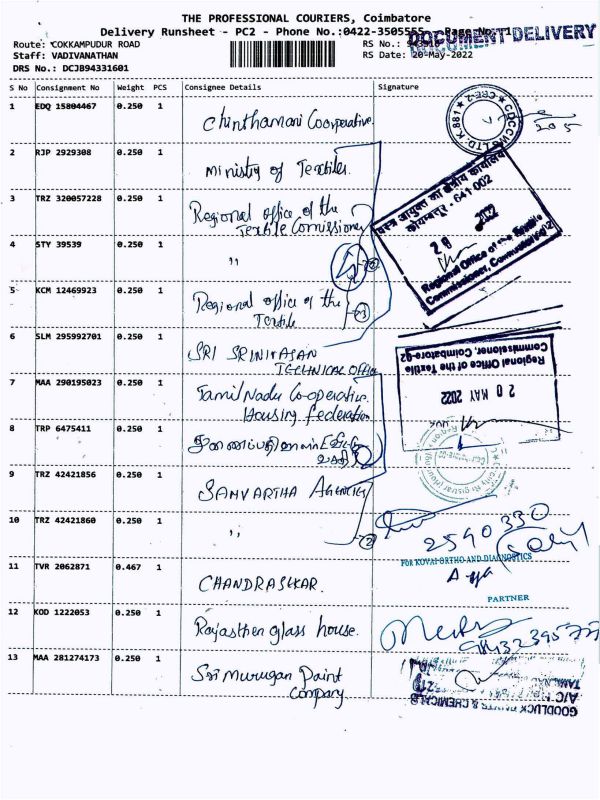 THE PROFESSIONAL COURIERS, Coimbatore
Delivery Runsheet - PC2 - Phone No.:0422-3505555
DOCUMENT DELIVERY
Route: COKKAMPUDUR ROAD
RS No.:
Staff: VADIVANATHAN
RS Date: 20-May-2022
DRS No.: DCJB94331601
S No Consignment No Weight PCS Consignee Details Signature
1 EDQ 15804467 0.250 1 Chinthamani Cooperative
2 RJP 2929308 0.250 1 Ministry of Textiles.
3 TRZ 320057228 0.250 1 Regional office of the
Textile Comissioner
4 STY 39539 0.250 1 "
5 KCM 12469923 0.250 1 Regional office of the
Textile
6 SLM 295992701 0.250 1 SRI SRINIVASAN
TECHNICAL OFFICE
7 MAA 290195023 0.250 1 Tamil Nadu Co-operative
Housing federation
8 TRP 6475411 0.250 1
9 TRZ 42421856 0.250 1 SANVARTHA AGENCIES
10 TRZ 42421860 0.250 1 "
11 TVR 2062871 0.467 1 CHANDRASEKAR.
12 KOD 1222053 0.250 1 Rajasthan glass house.
13 MAA 281274173 0.250 1 Sri Murugan Paint
Company
वस्त्र आयुक्त का क्षेत्रीय कार्यालय
कोयम्बतूर - 641 002
20 2022
Regional Office of the Textile
Commissioner, Coimbatore
Regional Office of the Textile
Commissioner, Coimbatore-2
20 MAY 2022
2590330
FOR KOVAI ORTHO AND DIAGNOSTICS
PARTNER
GOODLUCK PAINTS & CHEMICALS